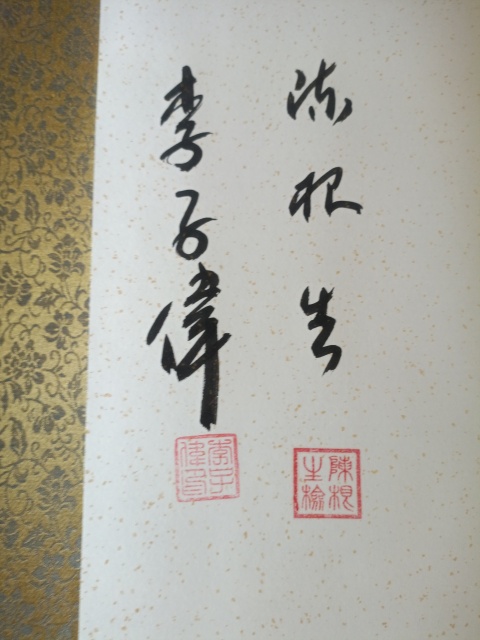 陳根生
李子偉
陳根生檢
李子偉印